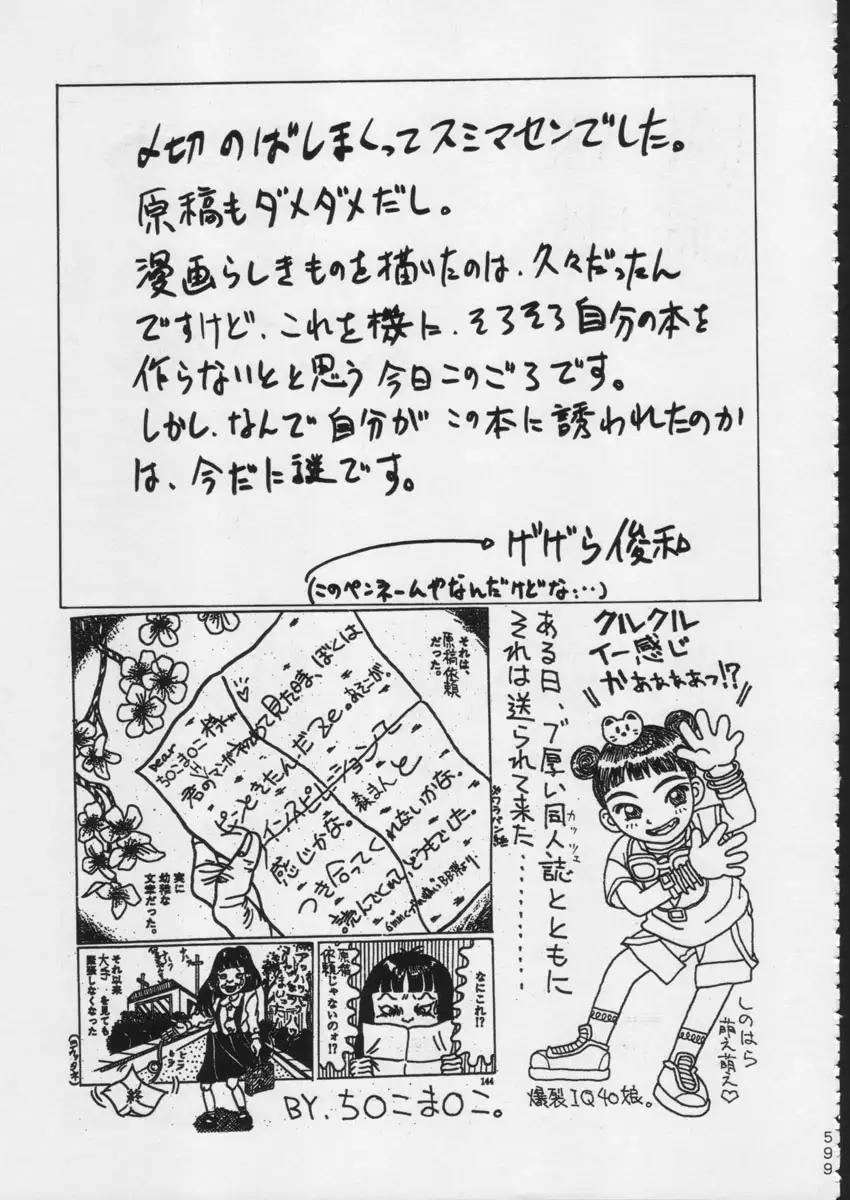 〆切のばしまくってスミマセンでした。
原稿もダメダメだし。
漫画らしきものを描いたのは、久々だったん
ですけど、これを機に、そろそろ自分の本を
作らないとと思う今日このごろです。
しかし、なんで自分がこの本に誘われたのか
は、今だに謎です。
げげら俊和
(このペンネームやなんだけどな…)
クルクル
イー感じ
かぁぁぁぁっ!?
ある日、ブ厚い同人誌とともに
カッツェ
それは送られて来た…………
それは、
原稿依頼
だった。
Dear
ち〇こま〇こ様
君のマンガ
見た時、ぼくは
ピンときたんだ
インスピレーション
感じかな。
つき合ってくれないかな。
読んでくれて、どうもでした。
実に
幼稚な
文章だった。
なにこれ!?
原稿
依頼じゃないのォ!?
144
それ以来
大手を見ても
緊張しなくなった
終
BY.ち〇こま〇こ。
しのはら
萌え萌え♡
爆裂IQ40娘。
599